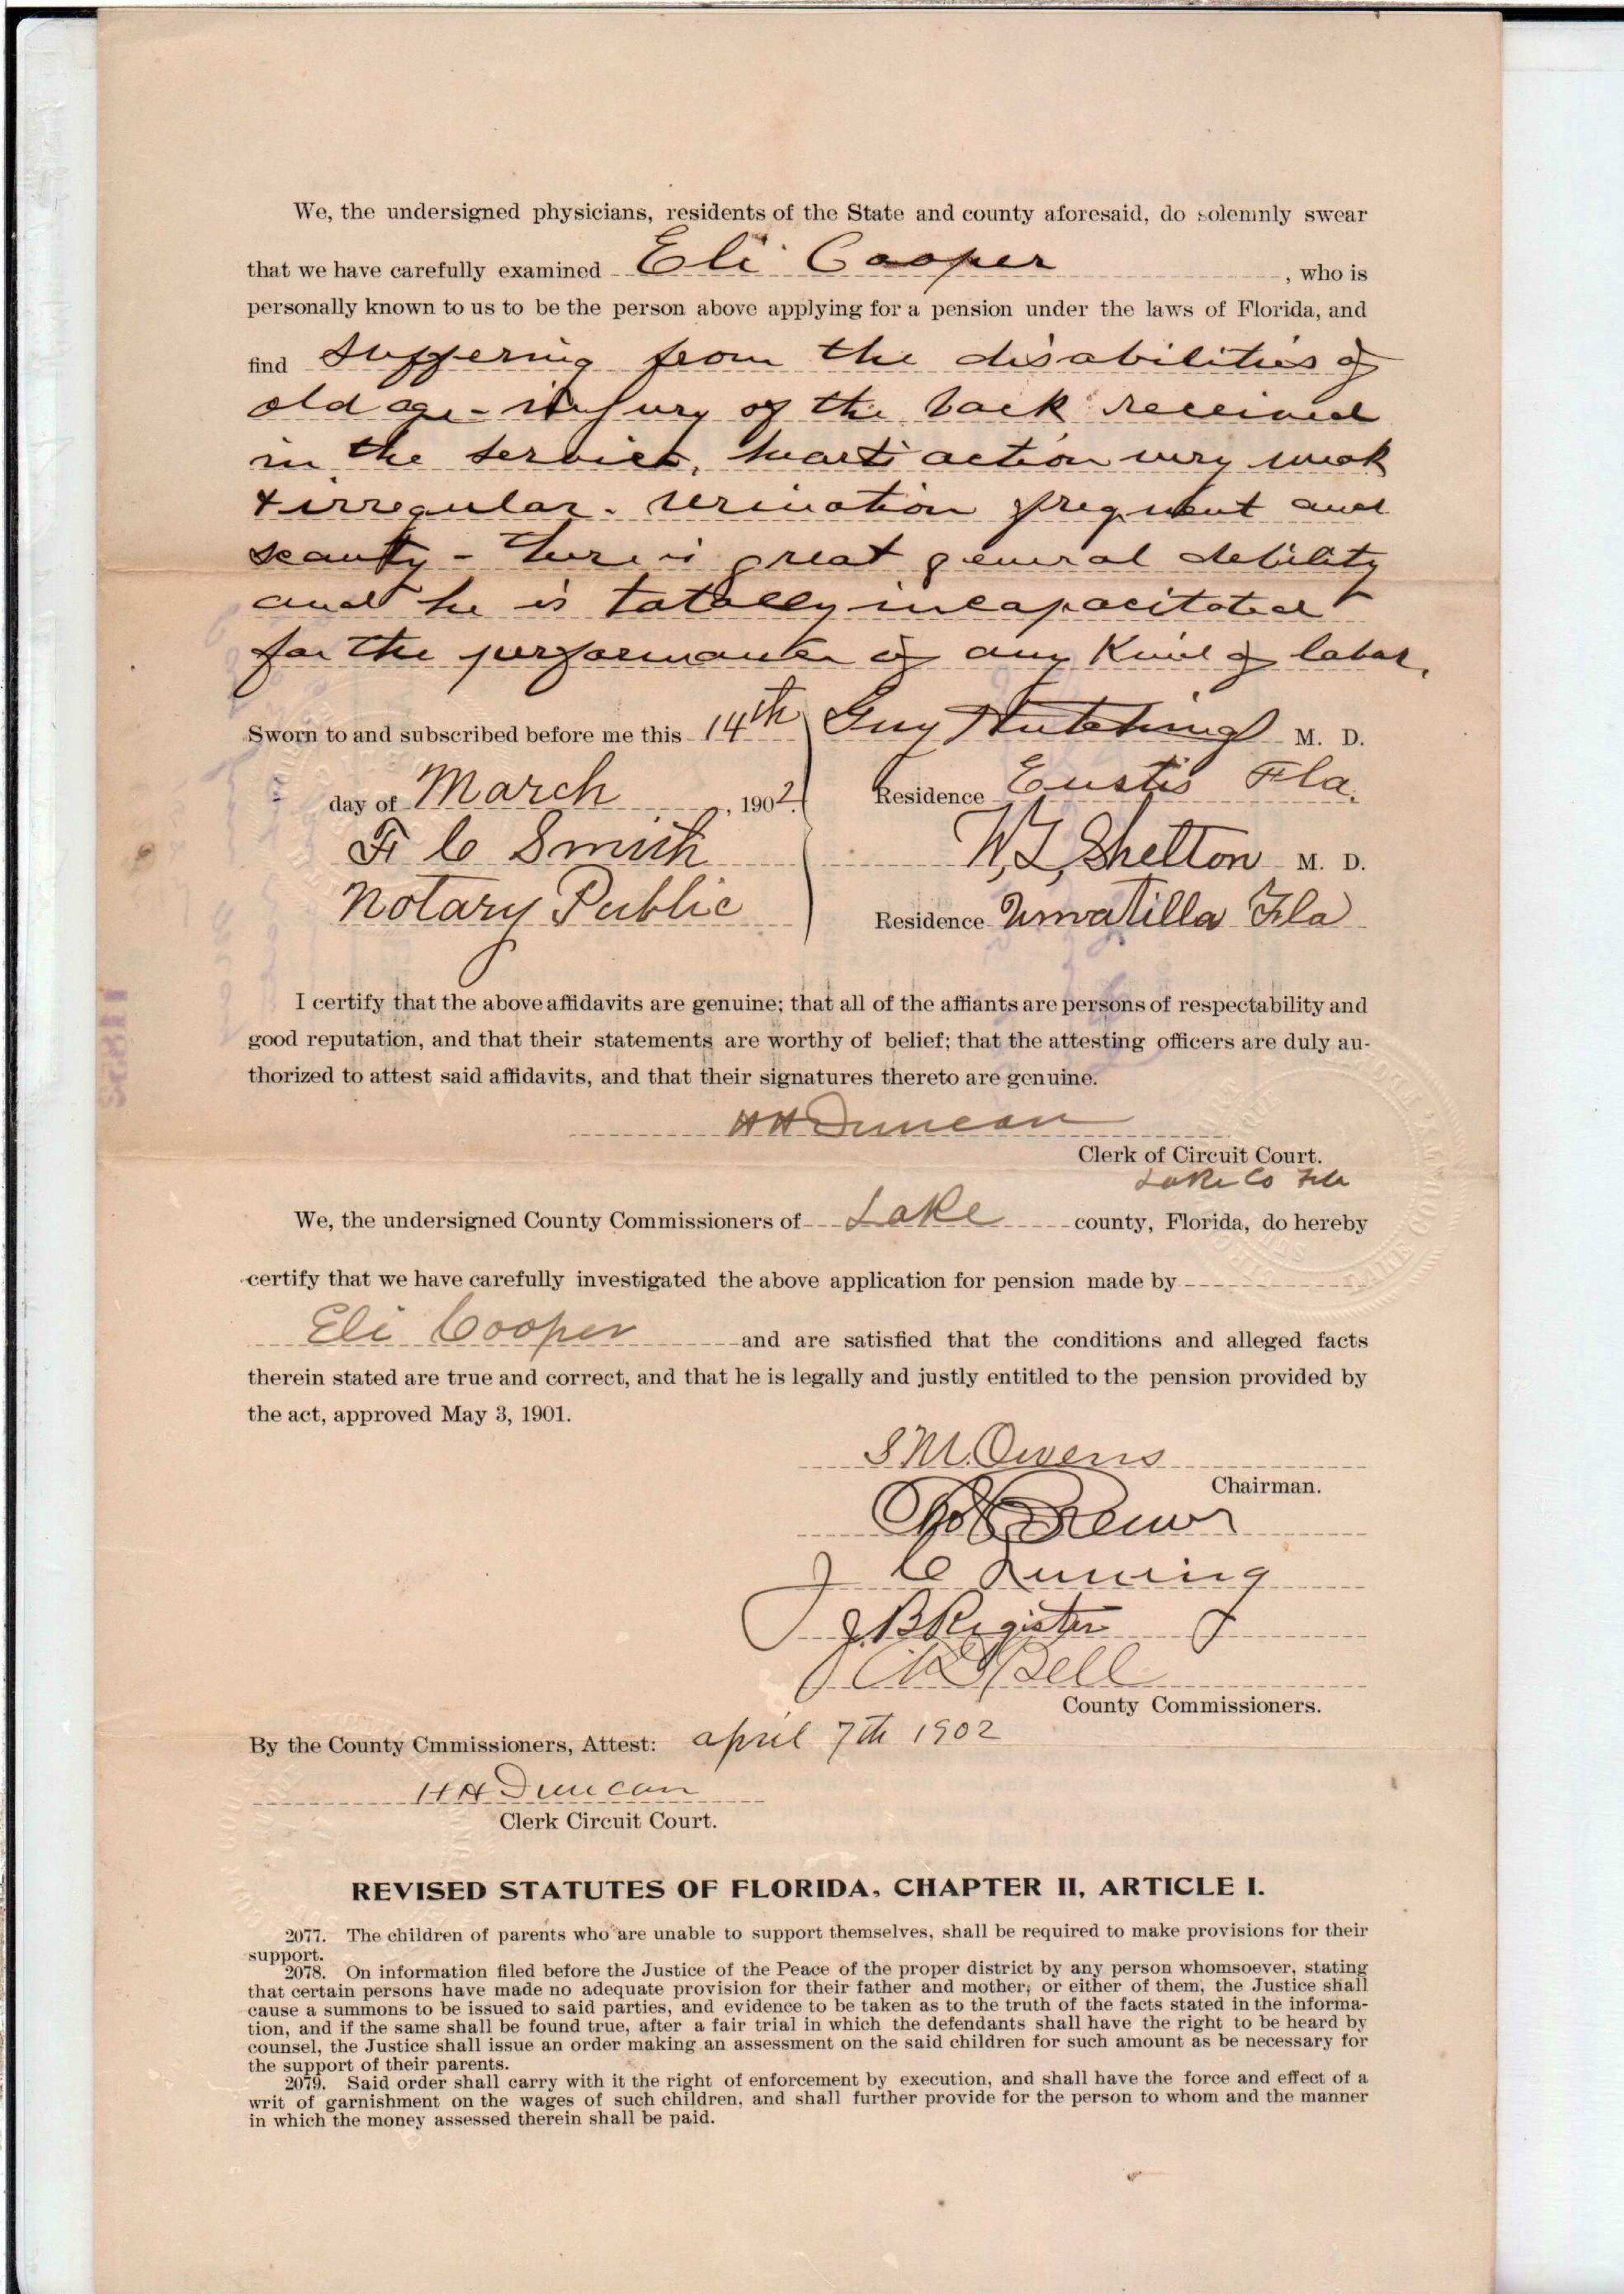 We, the undersigned physicians, residents of the State and county aforesaid, do solemnly swear
that we have carefully examined Eli Cooper, who is
personally known to us to be the person above applying for a pension under the laws of Florida, and
find suffering from the disabilities of
old age - injury of the back received
in the service, heart's action very weak
& irregular - urination frequent and
scanty - there is great general debility
and he is totally incapacitated
for the performance of any Kind of labor.
Sworn to and subscribed before me this 14th Guy Hutchings M. D.
day of March, 1902. Residence Eustis Fla.
F C Smith W. L. Shelton M. D.
Notary Public Residence Umatilla Fla
I certify that the above affidavits are genuine; that all of the affiants are persons of respectability and
good reputation, and that their statements are worthy of belief; that the attesting officers are duly au-
thorized to attest said affidavits, and that their signatures thereto are genuine.
H H Duncan
Clerk of Circuit Court.
Lake Co Fla
We, the undersigned County Commissioners of Lake county, Florida, do hereby
certify that we have carefully investigated the above application for pension made by
Eli Cooper and are satisfied that the conditions and alleged facts
therein stated are true and correct, and that he is legally and justly entitled to the pension provided by
the act, approved May 3, 1901.
S M. Owens
Chairman.
J C Luning
J. B Register
Bell
County Commissioners.
By the County Cmmissioners, Attest: april 7th 1902
H H Duncan
Clerk Circuit Court.
REVISED STATUTES OF FLORIDA, CHAPTER II, ARTICLE I.
2077. The children of parents who are unable to support themselves, shall be required to make provisions for their
support.
2078. On information filed before the Justice of the Peace of the proper district by any person whomsoever, stating
that certain persons have made no adequate provision for their father and mother, or either of them, the Justice shall
cause a summons to be issued to said parties, and evidence to be taken as to the truth of the facts stated in the informa-
tion, and if the same shall be found true, after a fair trial in which the defendants shall have the right to be heard by
counsel, the Justice shall issue an order making an assessment on the said children for such amount as be necessary for
the support of their parents.
2079. Said order shall carry with it the right of enforcement by execution, and shall have the force and effect of a
writ of garnishment on the wages of such children, and shall further provide for the person to whom and the manner
in which the money assessed therein shall be paid.